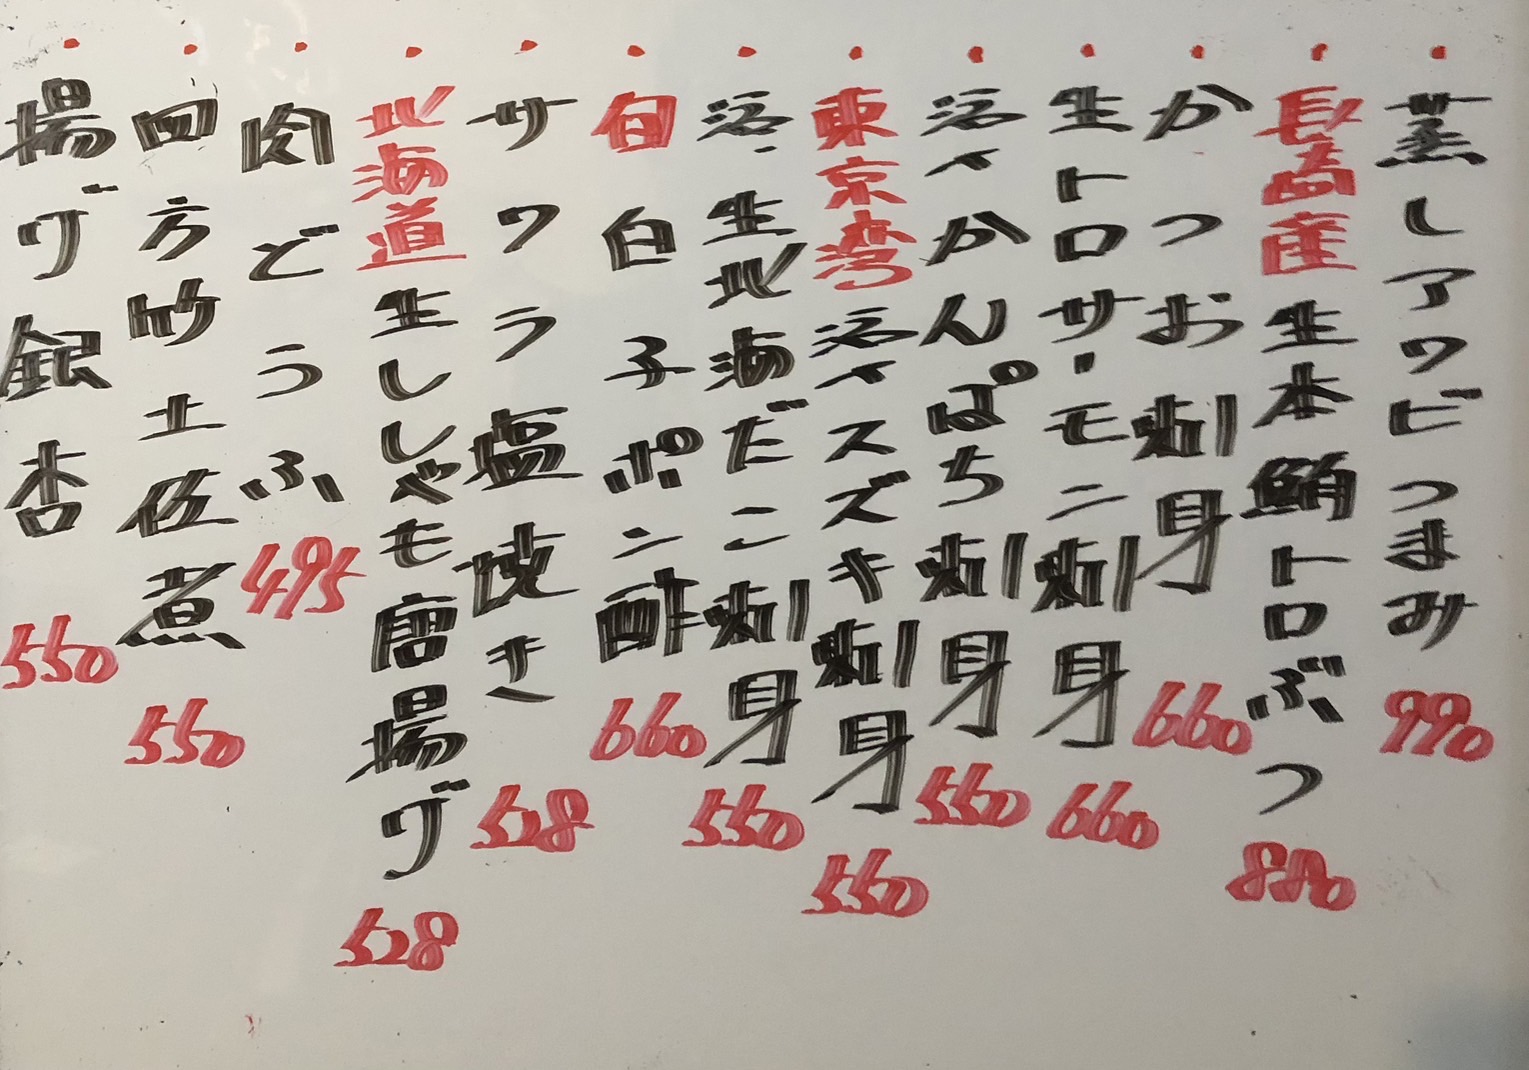 ・蒸しアワビつまみ 990
・長崎産生本鮪トロぶつ 880
・かつお刺身 660
・生トロサーモン刺身 660
・活〆かんぱち刺身 550
・東京湾活〆スズキ刺身 550
・活、生北海だこ刺身 550
・旬白子ポン酢 660
・サワラ塩焼き 528
・北海道生ししゃも唐揚げ 528
・肉どうふ 495
・四方竹土佐煮 550
・揚げ銀杏 550